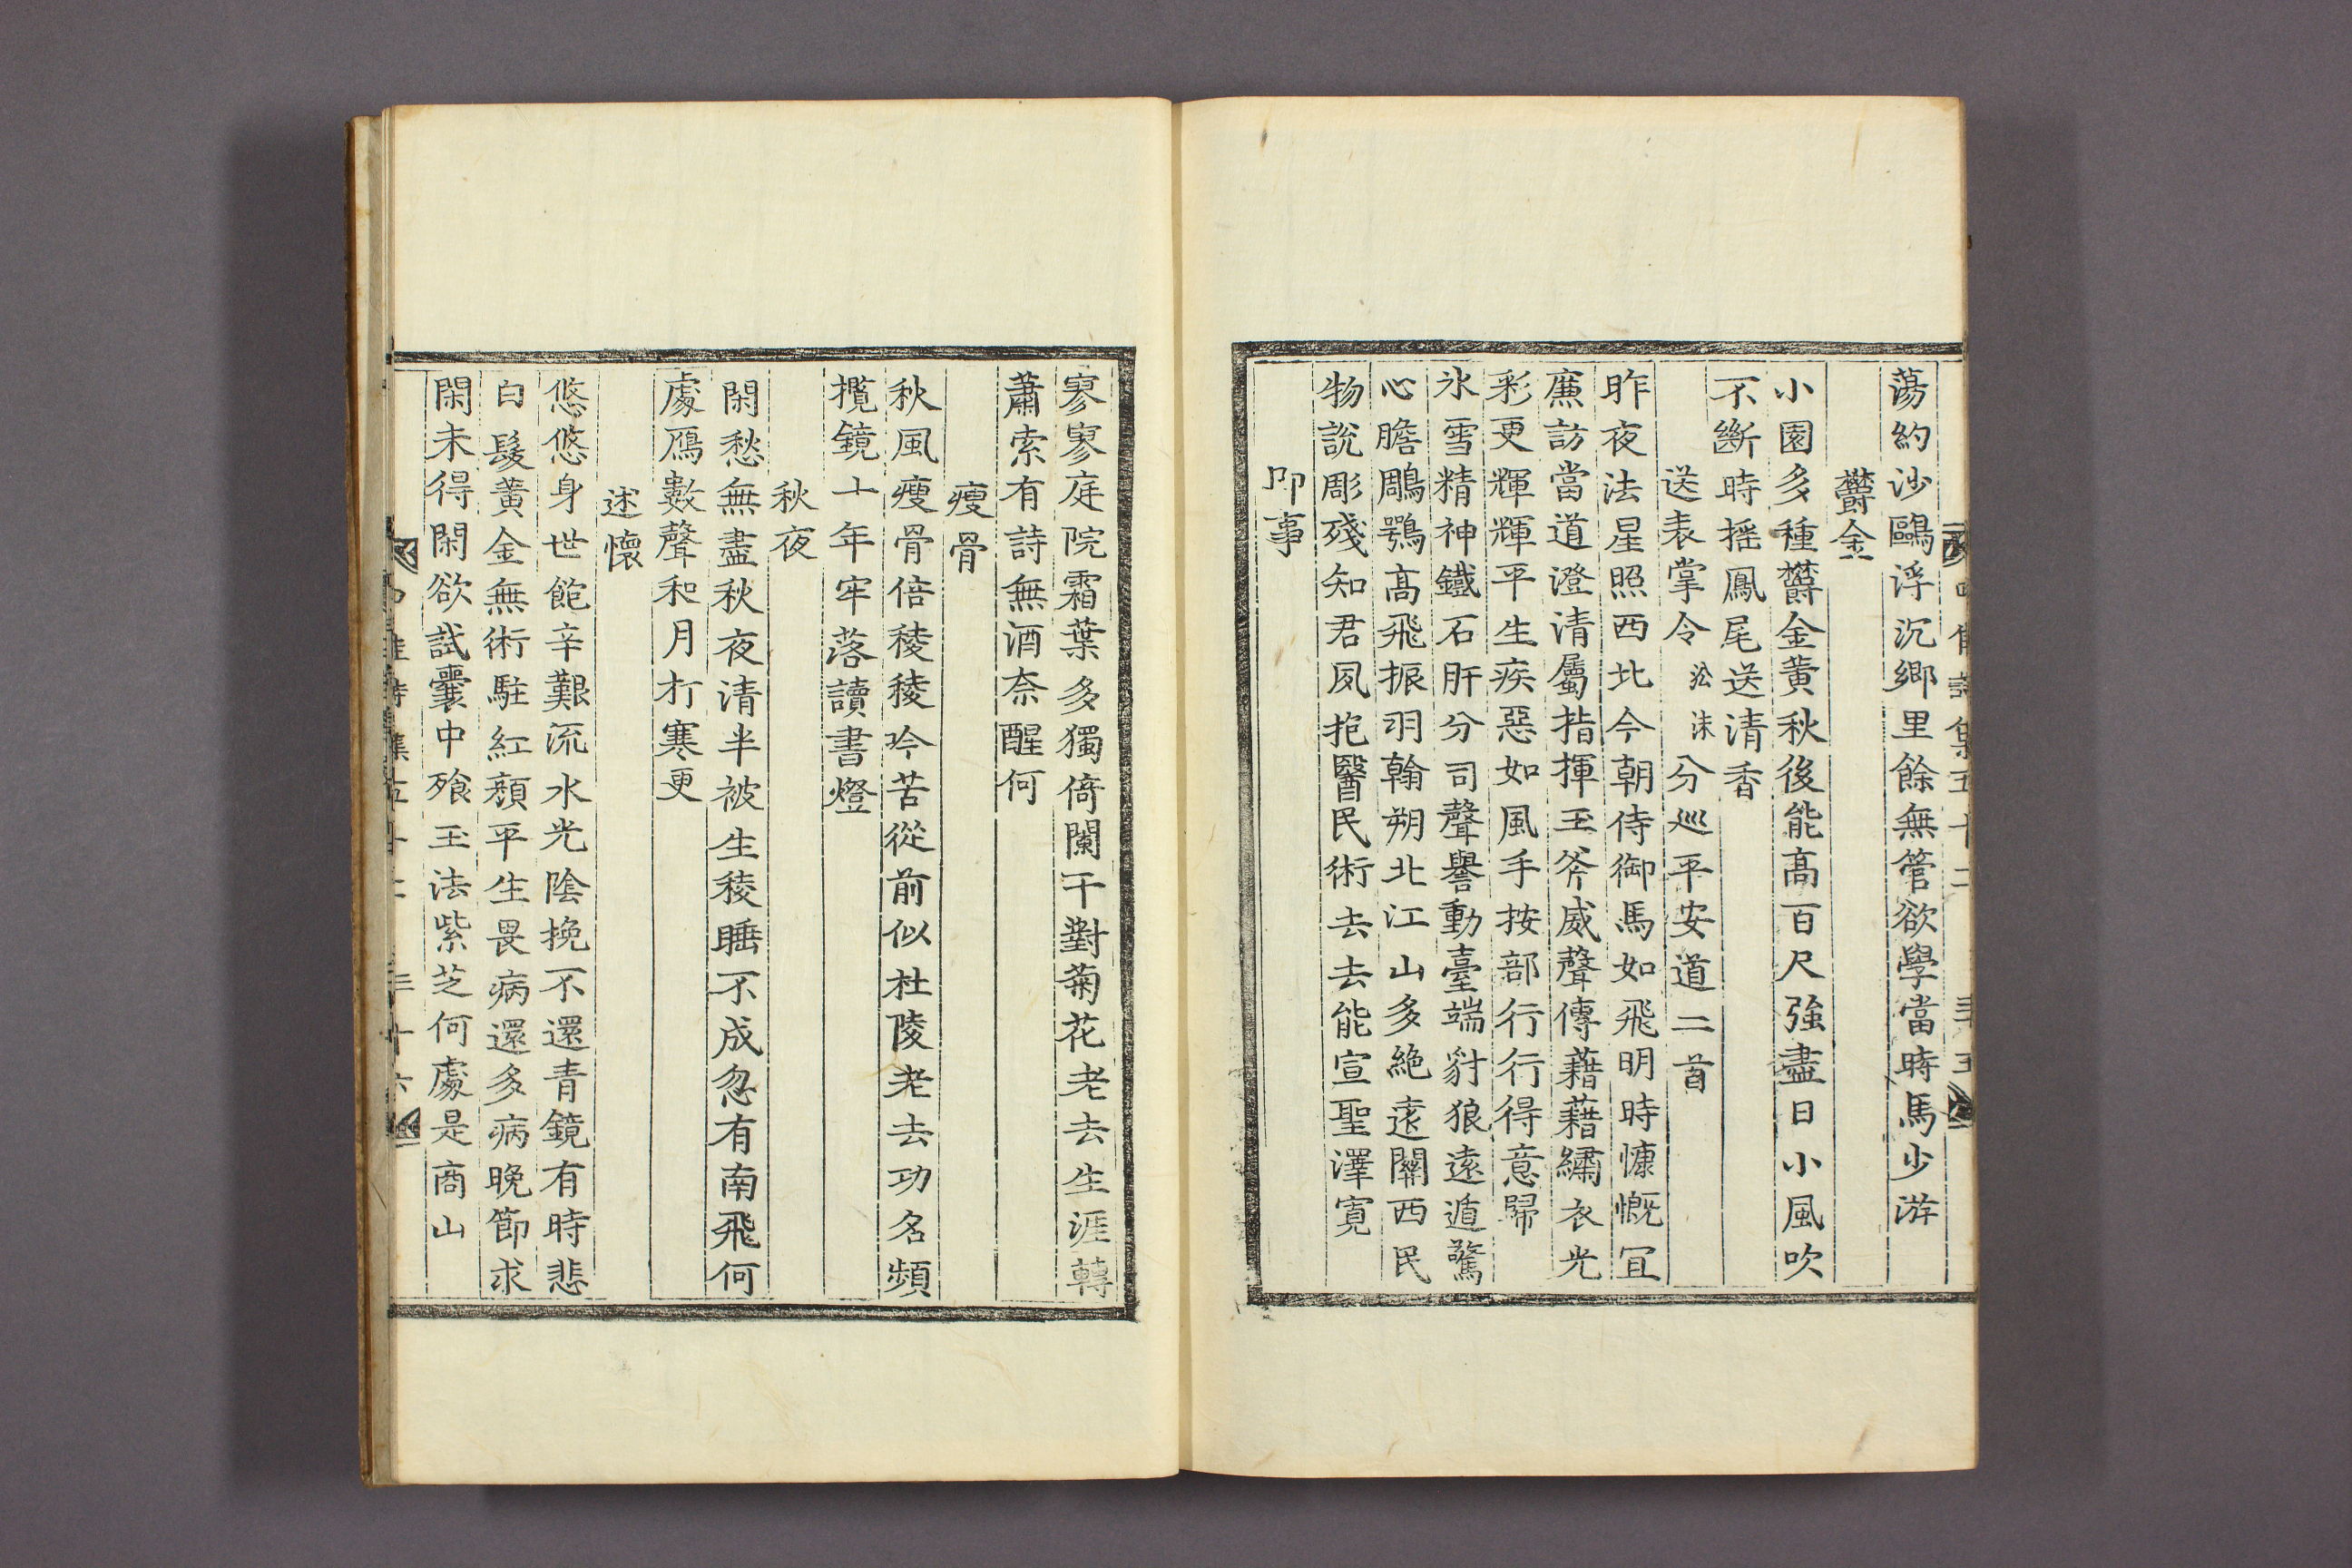 蕩約沙鷗浮沉鄉里餘無管欲學當時馬少游
欝金
小園多種欝金黄秋後能高百尺強盡日小風吹
不斷時搖鳳尾送清香
送表掌令 沿沫 分巡平安道二首
昨夜法星照西北今朝侍御馬如飛明時慷慨冝
廉訪當道澄清屬指揮玉斧威聲傳藉藉繡衣光
彩更輝輝平生疾惡如風手按部行行得意歸
氷雪精神鐵石肝分司聲譽動臺端豺狼遠遁驚
心膽鵰鶚高飛振羽翰朔北江山多絶遠關西民
物說彫殘知君夙抱醫民術去去能宣聖澤寬
即事
寥寥庭院霜葉多獨倚闌干對菊花老去生涯轉
蕭索有詩無酒奈醒何
瘦骨
秋風瘦骨倍稜稜吟苦從前似杜陵老去功名頻
攬鏡十年牢落讀書燈
秋夜
閑愁無盡秋夜清半被生稜睡不成忽有南飛何
處鴈數聲和月打寒更
述懷
悠悠身世飽辛艱流水光陰挽不還青鏡有時悲
白髮黄金無術駐紅顔平生畏病還多病晚節求
閑未得閑欲試囊中飱玉法紫芝何處是商山
佳詩集五十二 三十六